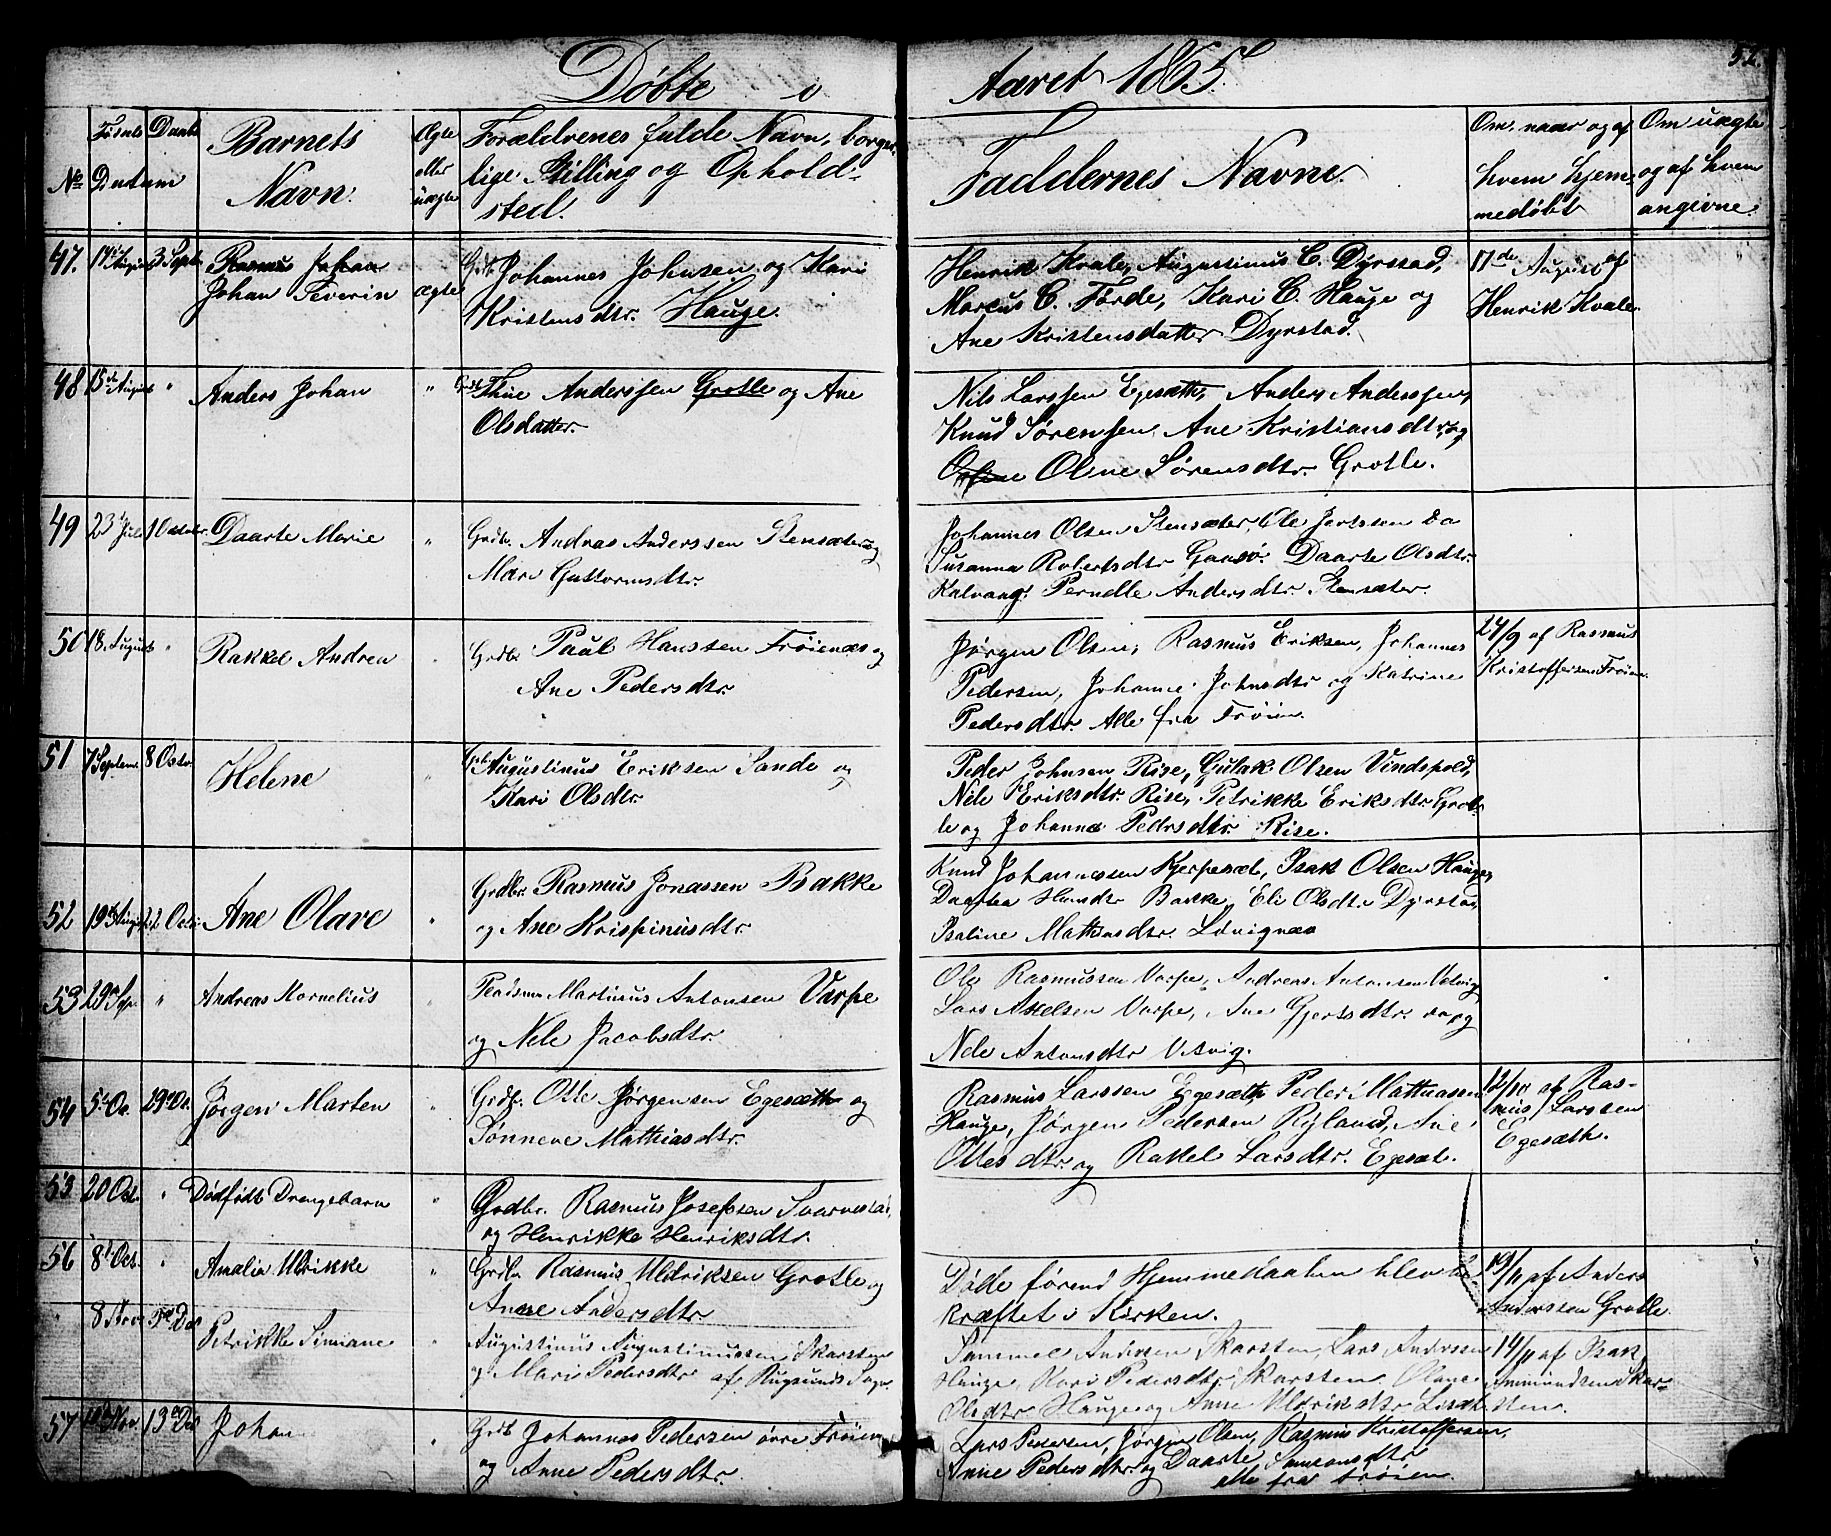 Døbte i Aaret 1865.
52.
No
Fødsels Daabs
Datum
Barnets
Navn.
Ægte
eller
uægte
Forældrenes fulde Navn, borger-
lige Stilling og Ophold-
sted.
Faddernes Navne.
Om, naar og af
hvem hjem-
medøbt
Om uægte
og af hvem
angivne.
47. 17de August 3 Sept. Rasmus Johan
Johan Severin
ægte
Grdb. Johannes Johnsen og Kari
Kristensdtr. Hauge.
Henrik Kvale, Augustinus C. Dyrstad,
Marcus C. Førde, Kari C. Hauge og
Ane Kristensdatter Dyrstad.
17de August af
Henrik Kvale
48 15de August " Anders Johan "
Thue Anderssen Grotle og Ane
Olsdatter.
Nils Larssen Egesæth, Anders Anderssen,
Knud Sørenssen, Ane Kristiansdtr. og
Olene Sørensdtr. Grotle.
49 23 Juli 1 October. Daarte Marie "
Grdb. Andreas Anderssen Stensæter og
Mari Guttormsdtr.
Johannes Olsen Stensæter, Ole Jertssen do
Susanna Robertsdtr Gaasø. Daarte Olsdtr.
Kalvaag. Pernelle Andersdtr. Stensæter.
50 18. August " Rakkel Andrea "
Grdbr Paul Hanssen Frøienæs og
Ane Pedersdtr.
Jørgen Olsen, Rasmus Eriksen, Johannes
Pedersen, Johanne Johnsdtr og Katrine
Pedersdtr. Alle fra Frøien.
24/9 af Rasmus
Kristoffersen Frøien.
51 7 Septem. 8 Octr. Helene "
Grdb. Augustinus Eriksen Sande og
Kari Olsdtr.
Peder Johnsen Rise, Gulak Olsen Vindspold,
Nele Eriksdtr. Rise, Petrikke Eriksdtr Grot-
le og Johanne Pedersdtr Rise.
52 19de August 22 Octr. Ane Olave "
Grdbr. Rasmus Jonassen Bakke
og Ane Krispinusdtr.
Knud Johannessen Kjerpesæt, Isak Olsen Hauge,
Daartea Hansdtr Bakke, Eli Olsdtr Dyrstad,
Isaline Mathiasdtr.
53 29de Sep. " Andreas Kornelius "
Martinus Antonsen Varpe
og Nele Jacobsdtr.
Ole Rasmussen Varpe, Andreas Antonsen Vetvig
Lars Axelsen Varpe, Ane Gjertsdtr. do og
Nele Antonsdtr Vetvig.
54 5te Oc. 29de Oc. Jørgen Marten "
Grdb. Otte Jørgensen Egesæth og
Sønneve Mathiasdtr.
Rasmus Larssen Egesæth, Peder Mathiassen
Hauge, Jørgen Pedersen Ryland, Ane
Ottesdtr. og Rakel Larsdtr. Egesæt.
12/10 af Ras-
mus Larssen
Egesæth.
53 20 Oct. " Dødfødt Drengebarn "
Grdbr. Rasmus Josefsen
og Henrikke Henriksdtr.
56 8de Oct. " Amalia Ulrikke "
Grdbr Rasmus Uldriksen Grotle og
Anne Andersdtr.
Døde førend Hjemmedaaben blev be-
kræftet i Kirken.
19/11 af Anders
Anderssen Grotle
" 8 Nov. 3de Dec Petrikke Simiane "
Augustinus Augustinussen Skarsten
og Mari Pedersdtr af Rugsunds Sogn.
Sammel Andersen Skarsten, Lars Anderssen
Hauge, Kari Pedersdtr Skarsten, Olave
Olsdtr. Hauge og Anne Uldriksdtr
14/11 af Isak
Ammundsen Skar-
sten.
57 Nov. 13de Dec Johan "
Grdb Johannes Pedersen øvre Frøien
og Anne Pedersdtr.
Lars Pedersen, Jørgen Olsen, Rasmus Kristoffersen,
Anne Pedersdtr. og Daarte Samsonsdtr
alle fra Frøien.